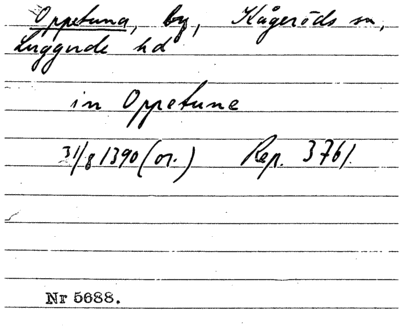 Oppetuna, by, Kågeröds sn,
Luggude hd
in Oppetune
31/8 1390 (or.) Rep. 3761.
Nr 5688.